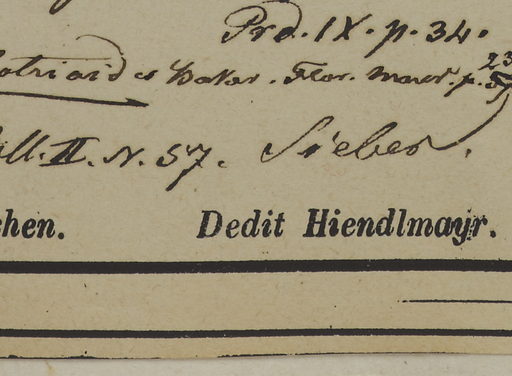 Prd. IX. p. 34.
otrioides Baker. Flor. maur. p. 23
ll. II. N. 57. Sieber.
chen. Dedit Hiendlmayr.